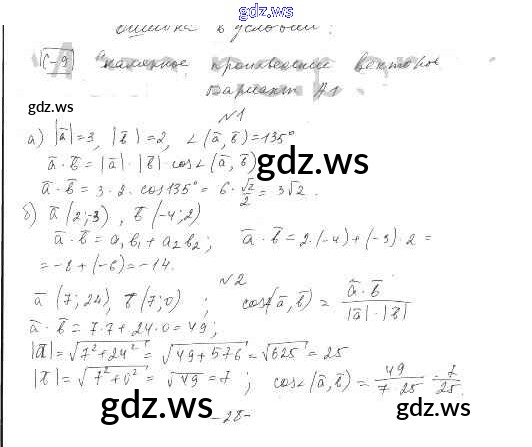 gdz.ws
ошибка в условии:
С-9 Скалярное произведение векторов
Вариант А1
gdz.ws
№1
а) |a̅|=3, |b̅|=2, ∠(a̅, b̅)=135°
a̅·b̅=|a̅|·|b̅|·cos∠(a̅, b̅)
gdz.ws
a̅·b̅=3·2·cos135°=6·√2/2=3√2.
б) a̅(2;-3), b̅(-4;2)
a̅·b̅=a₁b₁+a₂b₂; a̅·b̅=2·(-4)+(-3)·2=
=-8+(-6)=-14.
gdz.ws
gdz.ws
№2
a̅(7;24), b̅(7;0); cos∠(a̅,b̅)=a̅·b̅/|a̅|·|b̅|
a̅·b̅=7·7+24·0=49;
|a̅|=√7²+24²=√49+576=√625=25
|b̅|=√7²+0²=√49=7; cos∠(a̅,b̅)=49/7·25=7/25.
gdz.ws
gdz.ws
-28-
gdz.ws